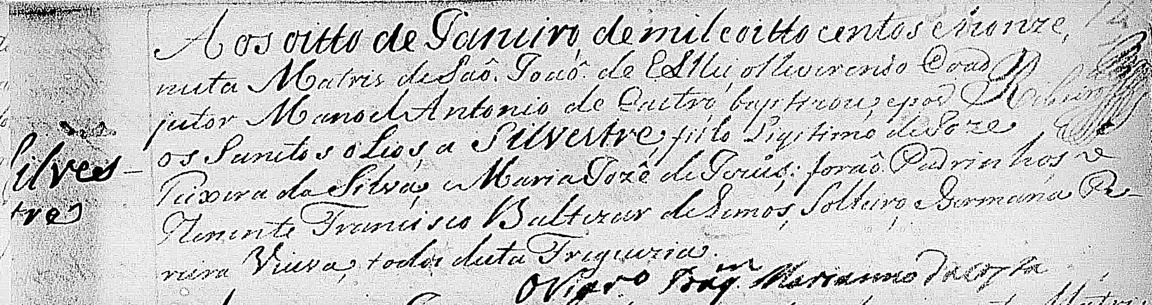 Silves-
tre
Aos oitto de Janeiro, de mil e oitto centos e honze,
nesta Matris de Saõ. Joaõ. de ElRei, o Reverendo Coad
jutor Manoel Antonio de Castro, baptizou, e pos
os Sanctos oLios, a Silvestre, fillo Ligitimo de Joze
Teixera da Silva, e Maria Jozê de Jezus: foraõ Padrinhos o
Tenente Francisco Baltezar de Lemos, Solteiro, e Germana Pe-
reira Viuva, todos desta Freguezia.
O Vigrº Joaqm Marianno da Costa